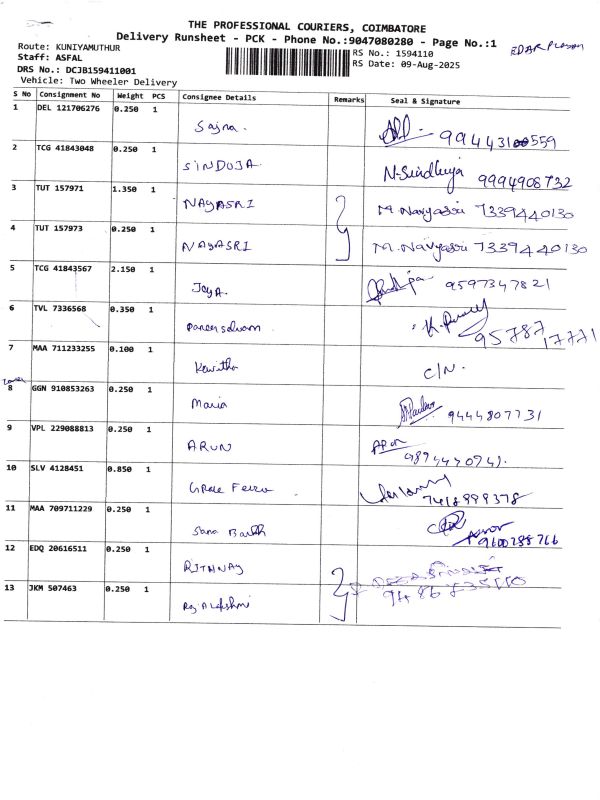 THE PROFESSIONAL COURIERS, COIMBATORE
Delivery Runsheet - PCK - Phone No.:9047080280 - Page No.:1
Route: KUNIYAMUTHUR
RS No.: 1594110
Staff: ASFAL
RS Date: 09-Aug-2025
DRS No.: DCJB159411001
Vehicle: Two Wheeler Delivery
S No Consignment No Weight PCS Consignee Details Remarks Seal & Signature
1 DEL 121706276 0.250 1 Sajna.
2 TCG 41843048 0.250 1 SINDUJA. N-Sindhuja 9994908732
3 TUT 157971 1.350 1 NAYASRI M. Navyasri 7339440130
4 TUT 157973 0.250 1 NAYASRI M. Navyasri 7339440130
5 TCG 41843567 2.150 1 Jaya. 9597347821
6 TVL 7336568 0.350 1 Paneerselvam 95787 17771
7 MAA 711233255 0.100 1 Kavitha C/N.
8 GGN 910853263 0.250 1 Maria 9444807731
9 VPL 229088813 0.250 1 ARUN
10 SLV 4128451 0.850 1 7418999378
11 MAA 709711229 0.250 1 9600288766
12 EDQ 20616511 0.250 1
13 JKM 507463 0.250 1